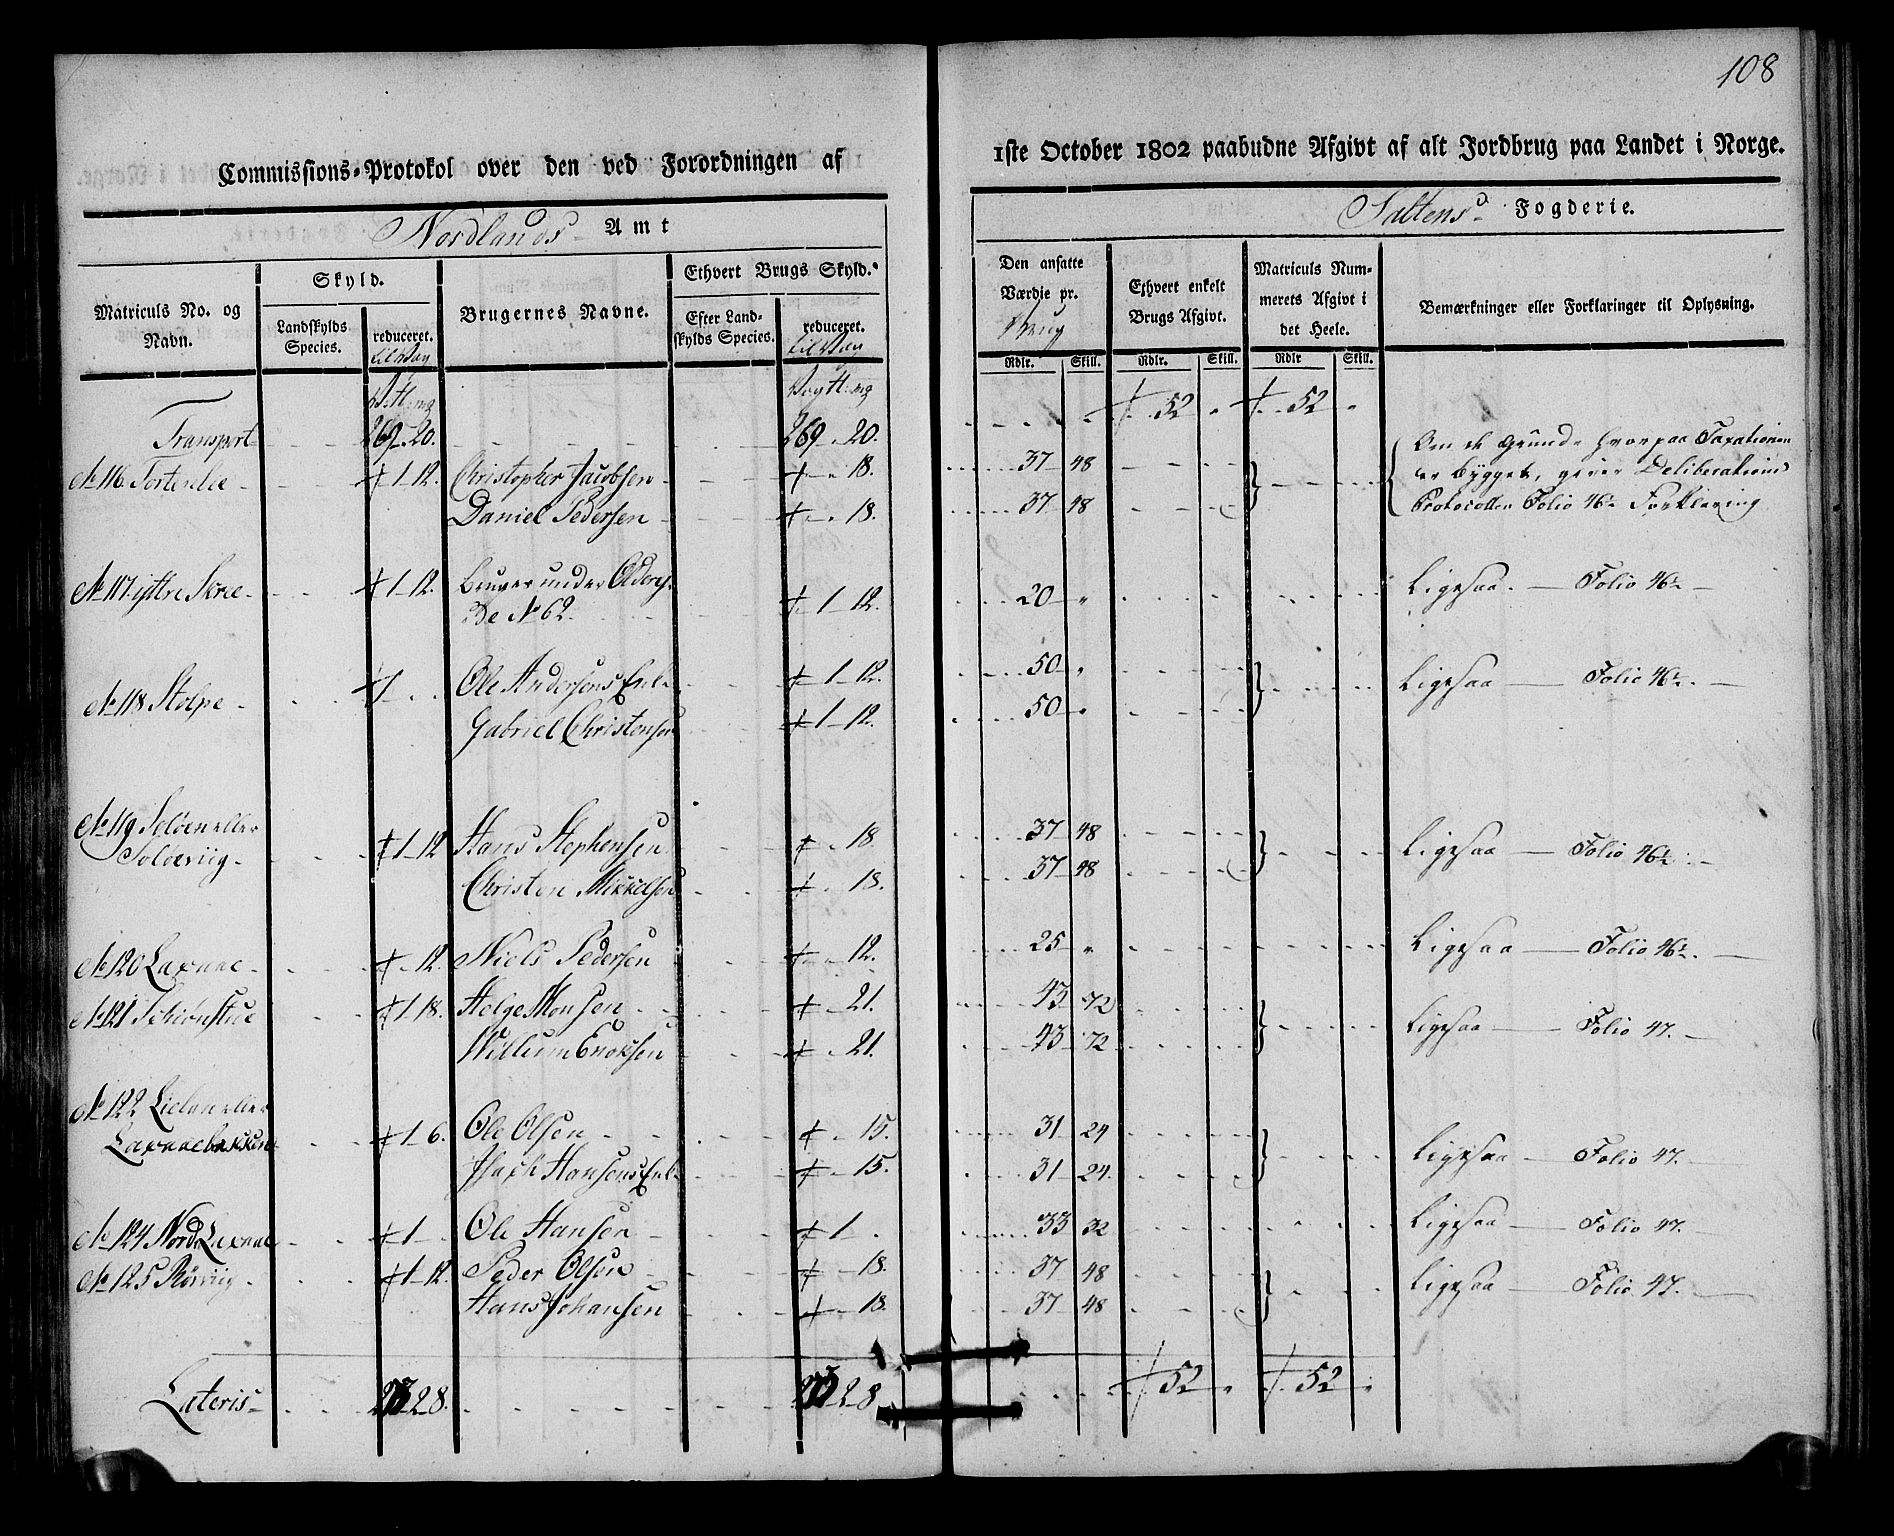 108
Commissions-Protokol over den ved Forordningen af 1ste October 1802 paabudne Afgivt af alt Jordbrug paa Landet i Norge.
Nordlands Amt
Saltens Fogderie.
Matriculs No. og Navn.
Skyld.
Landskylds Species.
reduceret.
Brugernes Navne.
Ethvert Brugs Skyld.
Efter Landskylds Species.
reduceret.
Den ansatte Værdie pr. Brug
Rdlr. Skill.
Ethvert enkelt Brugs Afgivt.
Rdlr. Skill.
Matriculs Nummerets Afgivt i det Heele.
Rdlr Skill.
Bemærkninger eller Forklaringer til Oplysning.
Transport 269-20. 269-20. 52 52
No 116 1-12. Christopher Jacobsen 18. 37 48 Om de Grunde hvorpaa Taxationen
er bygget, giver Deliberations
Daniel Pedersen 18. 37 48 Protocollen Folio 46 Forklaring
No 117 yttre 1-12. Bruges under
No 62. 1-12. 20 " Ligesaa. Folio 46
No 118 Stolpe 1 Ole Andersens Enke 1-12. 50 " Ligesaa Folio 46
Gabriel Christensen 1-12. 50 "
No 119 Soløen eller
Soløeviig 1-12 Hans Stephensen 18. 37 48 Ligesaa Folio 46
Christen Mikkelsen 18. 37 48
No 120 Laxaae 12. Niels Pedersen 12. 25 " Ligesaa Folio 46
No 121 Schiønstue 1-18. Helge Monsen 21. 43 72 Ligesaa Folio 47.
Willum Enoksen 21. 43 72
No 122 Lielan eller
Laxaaebakken 1-6. Ole Olsen 15. 31 24 Ligesaa Folio 47.
Hansens Enke 15. 31 24.
No 124 Nord Laxaae 1 Ole Hansen 1. 33 32 Ligesaa Folio 47.
No 125 Rørviig 1-12. Peder Olsen 18. 37 48 Ligesaa Folio 47.
Hans Johansen 18. 37 48
Lateris 2-8. 2-8 52 52